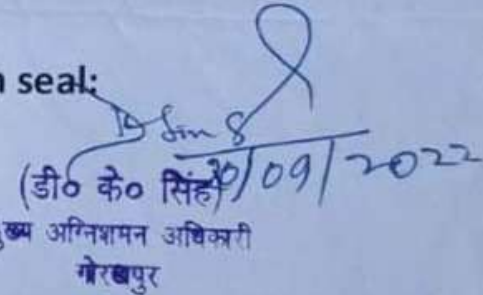 seal:
30/09/2022
(डी० के० सिंह)
मुख्य अग्निशमन अधिकारी
गोरखपुर